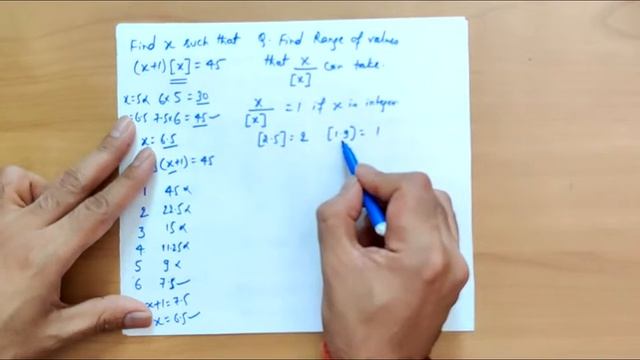 Find x such that
(x+1)[x] = 45
x=5α 6×5 = 30
=6.5 7.5×6 = 45 ✓
x = 6.5
(x+1) = 45
1 45α
2 22.5α
3 15α
4 11.25α
5 9α
6 7.5 ✓
x+1 = 7.5
x = 6.5 ✓
Q. Find Range of values
that x/[x] can take.
x/[x] = 1 if x is integer
[2.5] = 2 [1.9] = 1